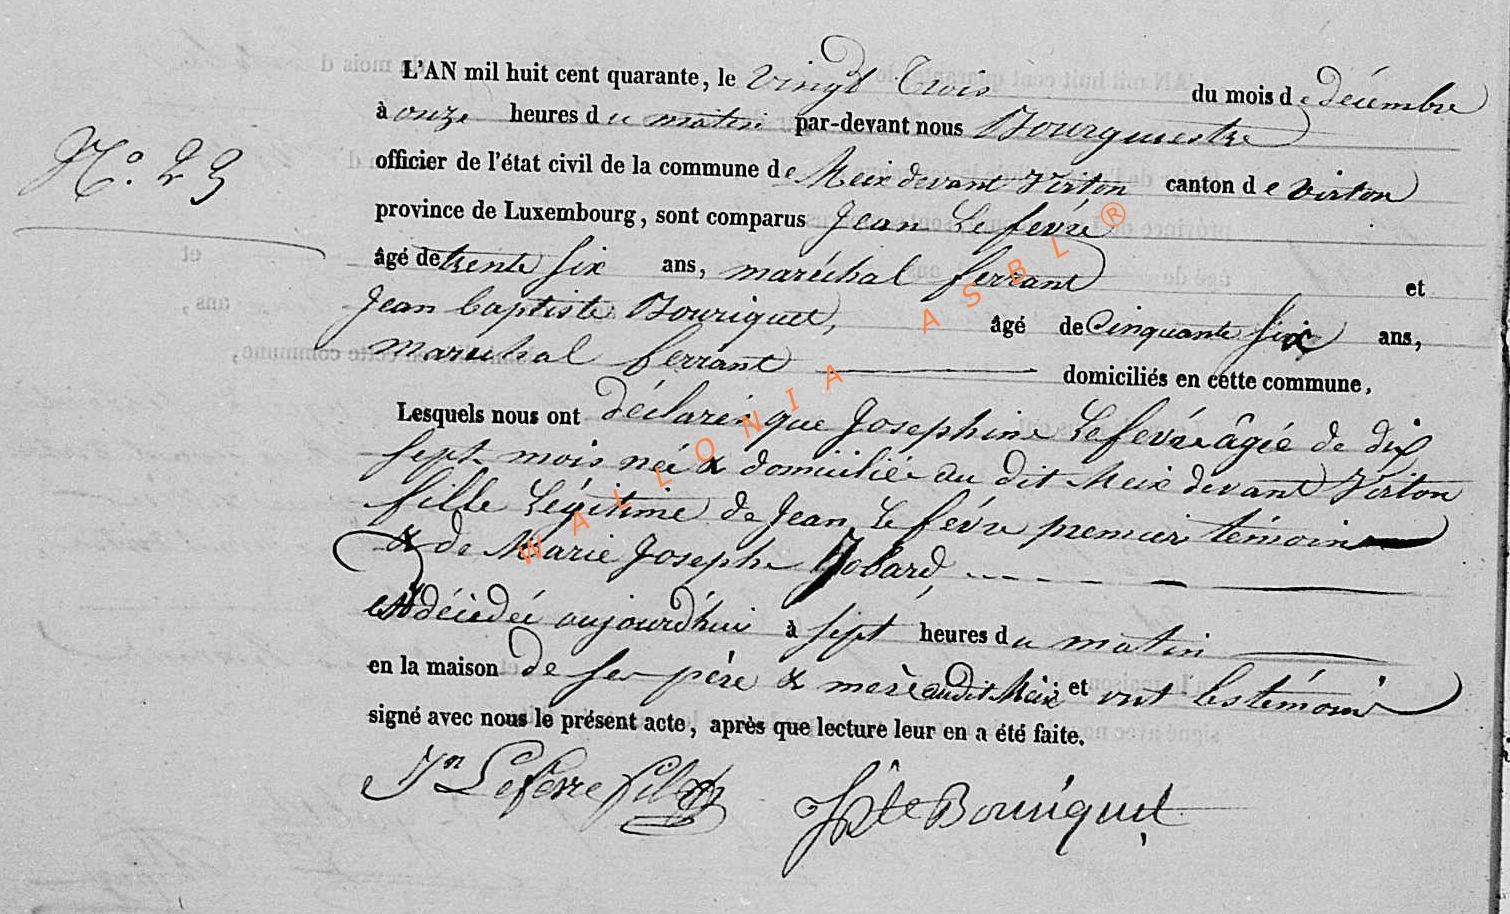 L'AN mil huit cent quarante, le vingt trois du mois de décembre
à onze heures du matin par-devant nous Bourgmestre
N.° 23
officier de l'état civil de la commune de Meix devant Virton canton de virton
province de Luxembourg, sont comparus Jean Lefévre
âgé de trente six ans, maréchal ferrant et
Jean Baptiste Bouriquet, âgé de Cinquante six ans,
maréchal ferrant domiciliés en cette commune,
Lesquels nous ont déclaré que Josephine Lefévre âgée de dix
sept mois née & domiciliée au dit Meix devant Virton
fille Légitime de Jean Lefévre premier témoin
& de Marie Josephe Jobard
est décédée aujourd'hui à sept heures du matin
en la maison de ses père & mere audit Meix et ont les témoins
signé avec nous le présent acte, après que lecture leur en a été faite.
Jn Lefevre fils JBte Bouriquet
WALLONIA ASBL ®